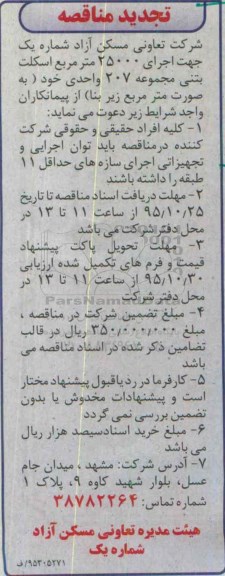 تجدید مناقصه
شرکت تعاونی مسکن آزاد شماره یک
جهت اجرای ۲۵۰۰۰ متر مربع اسکلت
بتنی مجموعه ۲۰۷ واحدی خود ( به
صورت متر مربع زیر بنا) از پیمانکاران
واجد شرایط زیر دعوت می نماید:
۱- کلیه افراد حقیقی و حقوقی شرکت
کننده درمناقصه باید توان اجرایی و
تجهیزاتی اجرای سازه های حداقل ۱۱
طبقه را داشته باشند
۲- مهلت دریافت اسناد مناقصه تا تاریخ
۹۵/۱۰/۲۵ از ساعت ۱۱ تا ۱۳ در
محل دفتر شرکت می باشد
۳- مهلت تحویل پاکت پیشنهاد
قیمت و فرم های تکمیل شده ارزیابی
۹۵/۱۰/۳۰ از ساعت ۱۱ تا ۱۳ در
محل دفتر شرکت
۴- مبلغ تضمین شرکت در مناقصه ،
مبلغ ۳۵۰/۰۰۰/۰۰۰ ریال در قالب
تضامین ذکر شده در اسناد مناقصه می
باشد
۵- کارفرما در رد یاقبول پیشنهاد مختار
است و پیشنهادات مخدوش یا بدون
تضمین بررسی نمی گردد
۶- مبلغ خرید اسنادسیصد هزار ریال
می باشد
۷- آدرس شرکت: مشهد ، میدان جام
عسل، بلوار شهید کاوه ۹، پلاک ۱
شماره تماس: ۳۸۷۸۲۲۶۴
هیئت مدیره تعاونی مسکن آزاد
شماره یک
۹۵۳۰۵۲۷۱/ف